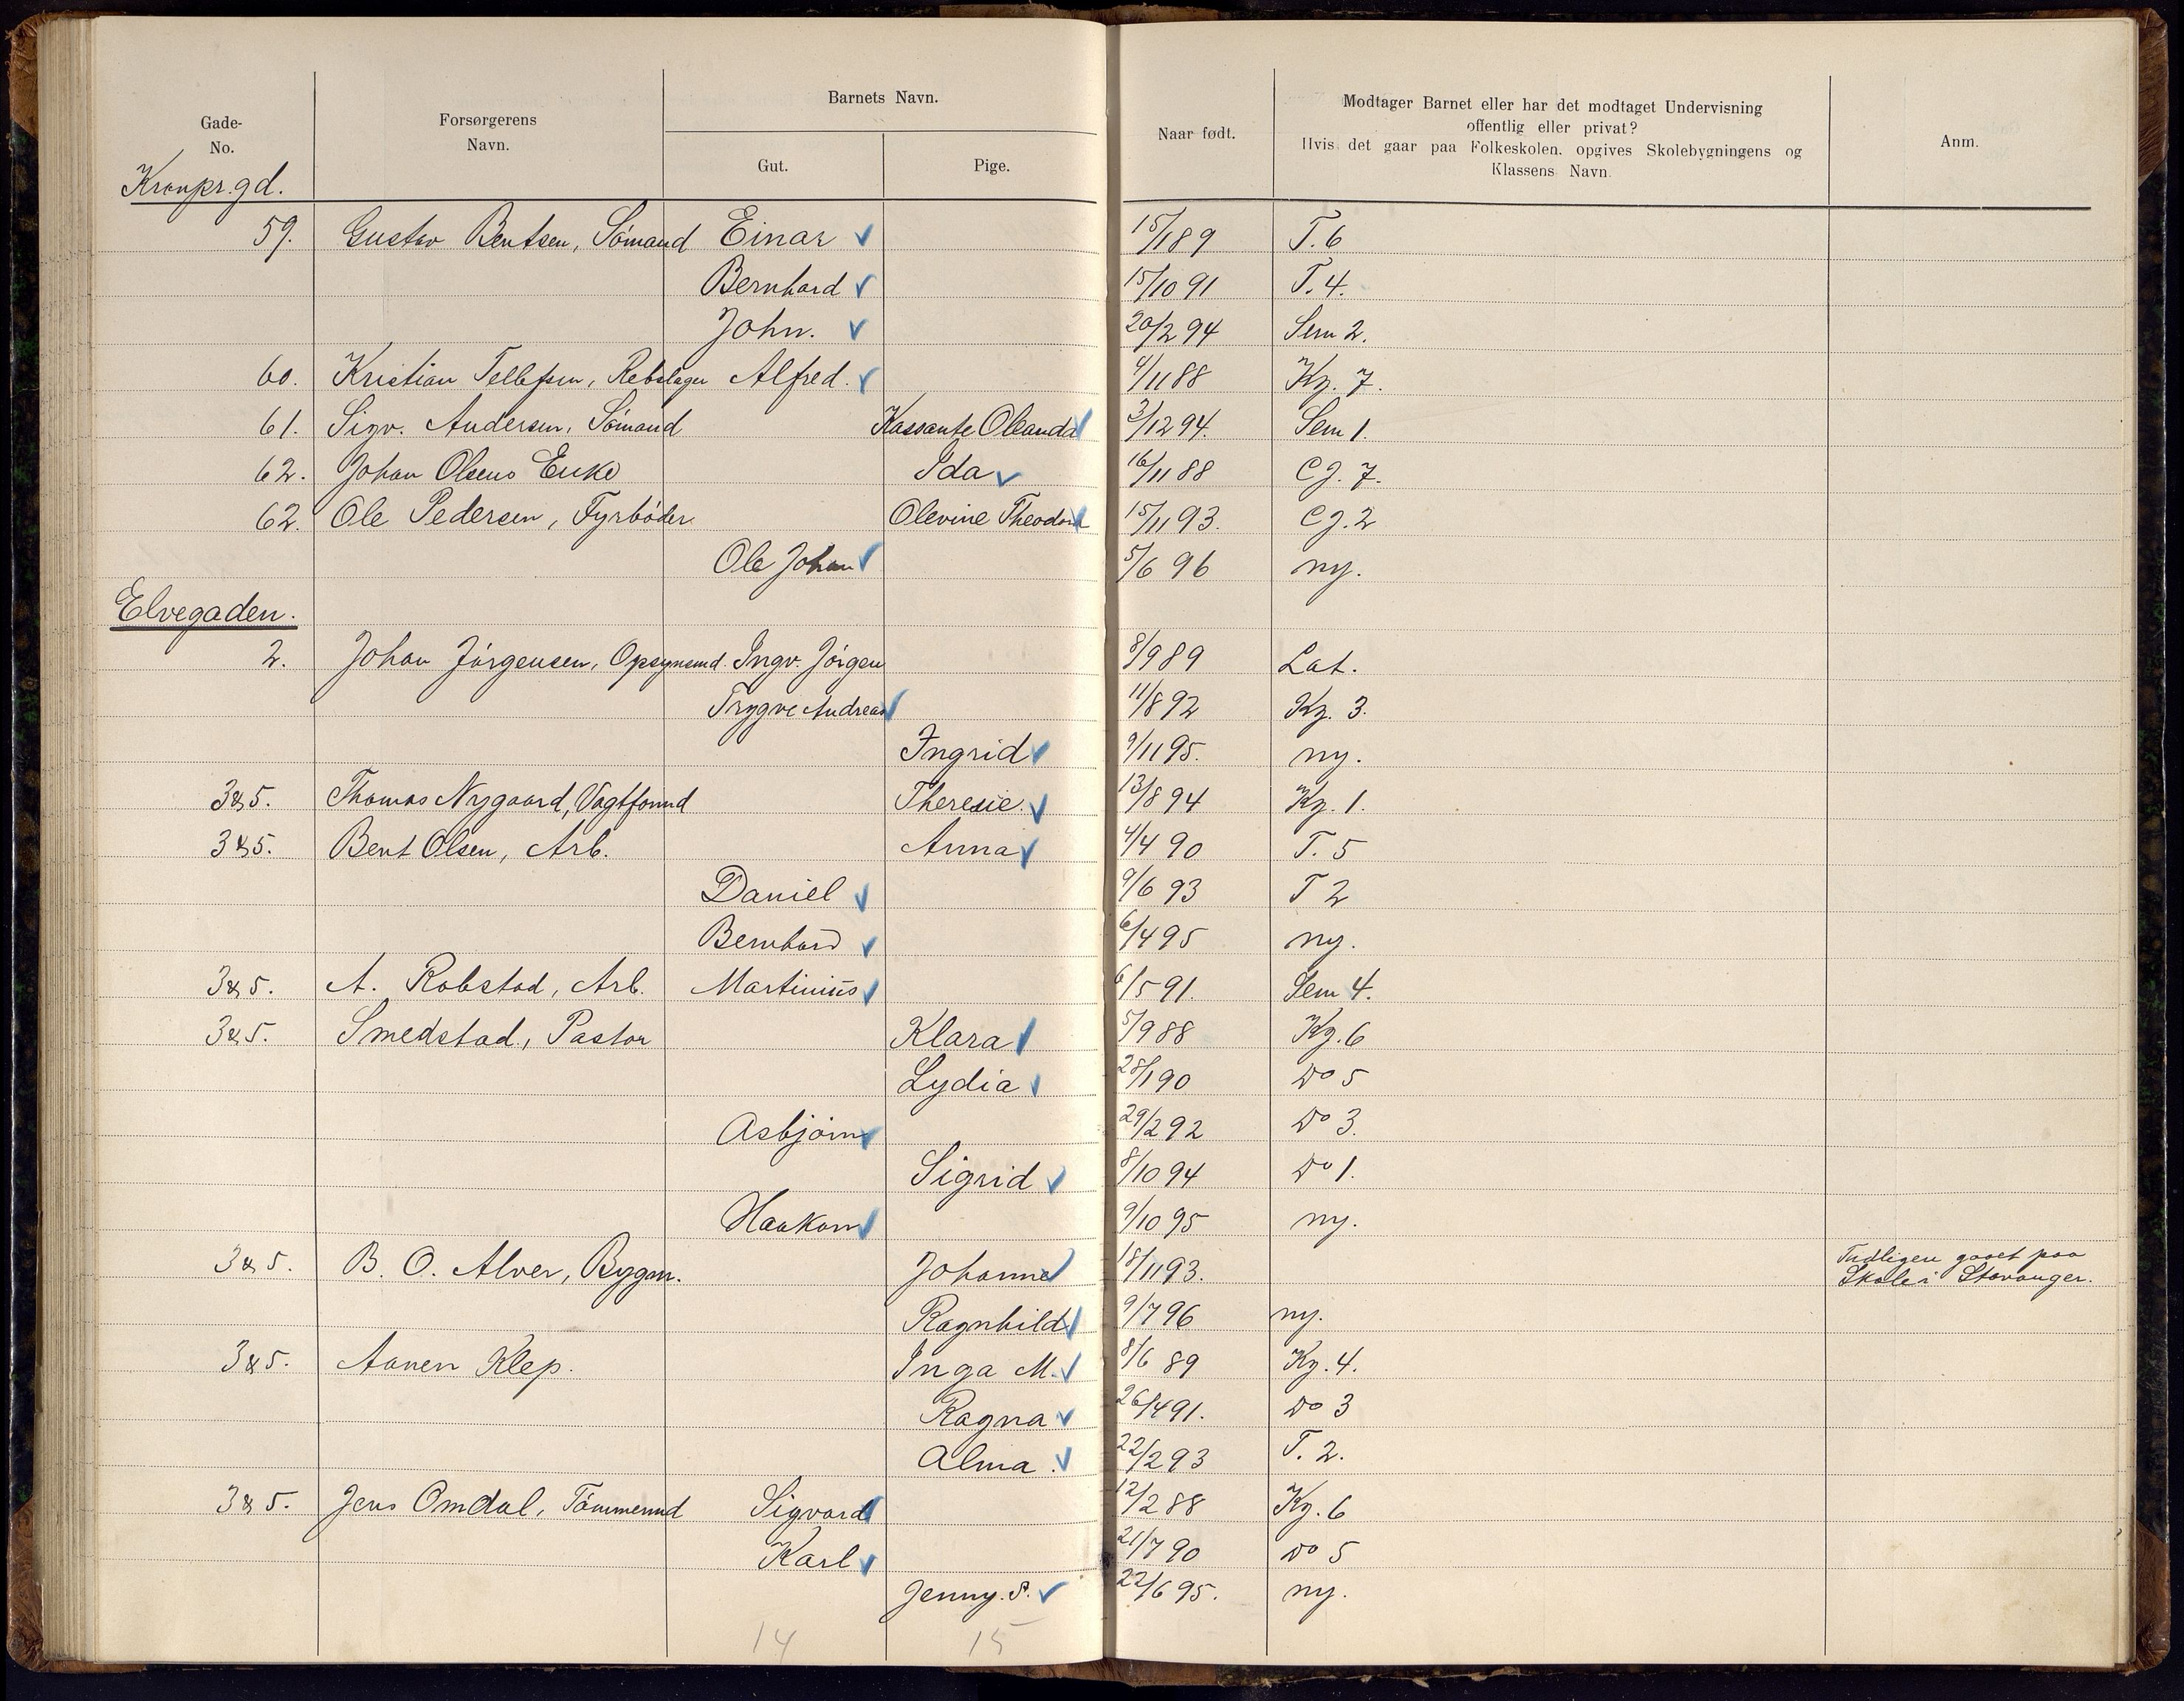 Gade-
No.
Forsørgerens
Navn.
Barnets Navn.
Gut.
Pige.
Naar født.
Modtager Barnet eller har det modtaget Undervisning
offentlig eller privat?
Hvis det gaar paa Folkeskolen, opgives Skolebygningens og
Klassens Navn.
Anm.
Kronpr.gd.
59. Gustav Bentsen, Sømand Einar 15/1 89 T. 6
Bernhard 15/10 91 T. 4.
John. 20/2 94 Sem 2.
60. Kristian Tellefsen, Rebslager Alfred. 4/11 88 Kg. 7.
61. Sigv. Andersen, Sømand Kassante Oleanda 3/12 94. Sem 1.
62. Johan Olsens Enke Ida 16/11 88 CJ. 7.
62. Ole Pedersen, Fyrbøder Olevine Theodora 15/11 93. CJ. 2
Ole Johan 5/6 96 ny.
Elvegaden.
2. Johan Jørgensen, Opsynsmd. Ingv. Jørgen 8/9 89 Lat.
Trygve Andreas 11/8 92 Kg. 3.
Ingrid 9/11 95. ny.
3&5. Thomas Nygaard, Vagtformd Theresie. 13/8 94 Kg. 1.
3&5. Bent Olsen, Arb. Anna 4/4 90 T. 5
Daniel 9/6 93 T 2
Bernhard 6/4 95 ny.
3&5. A. Robstad, Arb. Martinius 6/5 91. Sem 4.
3&5. Smedstad, Pastor Klara 5/9 88 Kg. 6
Lydia 28/1 90 Do 5
Asbjørn 29/2 92 Do 3.
Sigrid 8/10 94 Do 1.
Haakon 9/10 95 ny.
3&5. B. O. Alver, Bygm. Johanne 18/11 93. Tidligere gaaet paa
Skole i Stavanger.
Ragnhild 9/7 96 ny.
3&5. Aanen Klep. Inga M. 8/6 89 Kg. 4.
Ragna 26/4 91. Do 3
Alma. 22/2 93 T. 2.
3&5. Jens Omdal, Tømmermd Sigvard 12/2 88 Kg. 6
Karl 21/7 90 Do 5
Jenny. S. 22/6 95. ny.
14 15